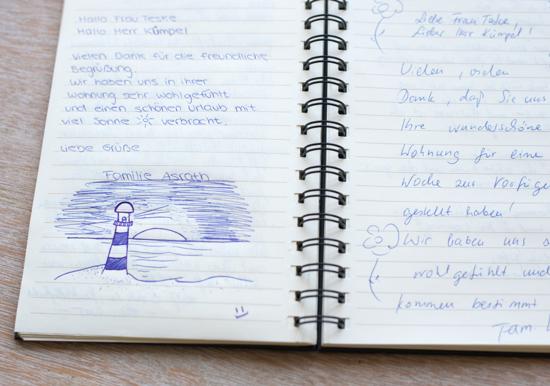 Hallo Frau Teske
Hallo Herr Kümpel
vielen Dank für die freundliche
Begrüßung.
wir haben uns in ihrer
wohnung sehr wohlgefühlt
und einen schönen Urlaub mit
viel Sonne verbracht.
Liebe Grüße
Familie Asrath
Liebe Frau Teske,
Lieber Herr Kümpel!
Vielen, vielen
Dank, daß Sie uns
Ihre wunderschöne
Wohnung für eine
Woche zur Verfügu
gestellt haben!
Wir haben uns
wohlgefühlt und
kommen bestimmt
Fam